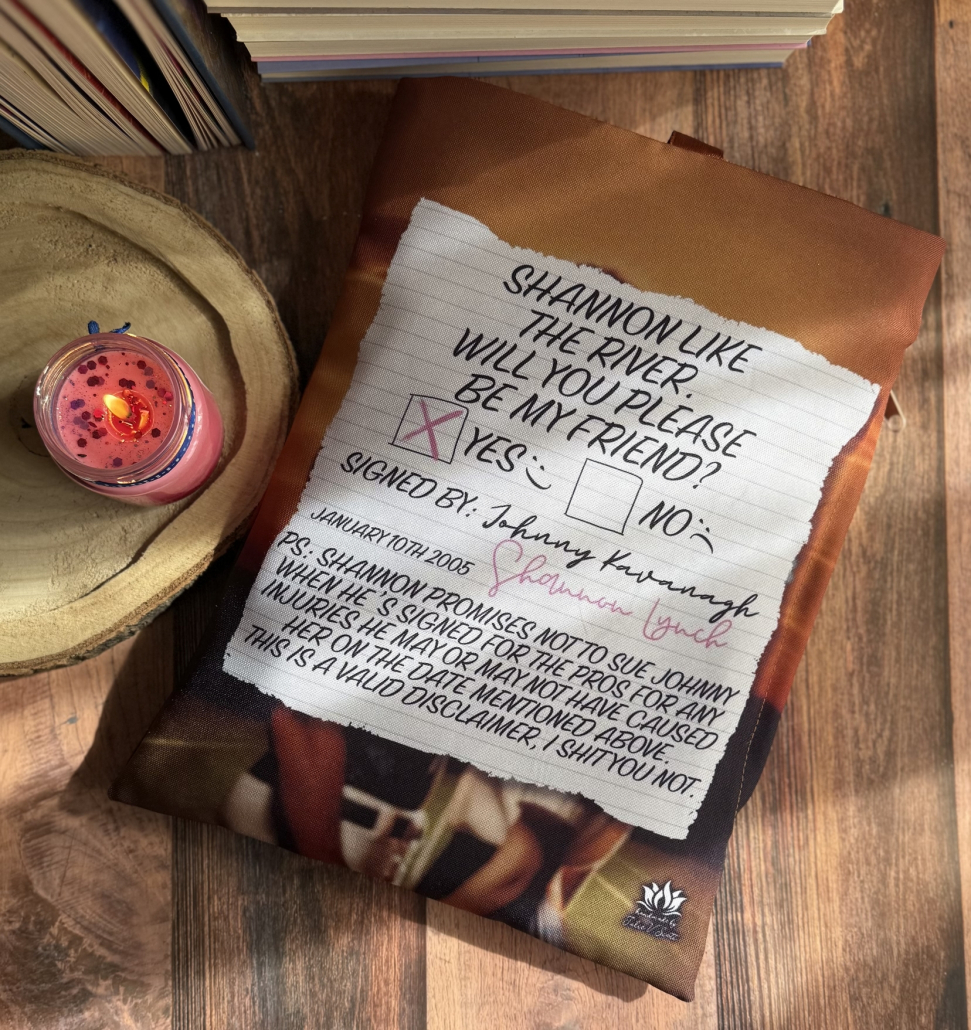 SHANNON LIKE
THE RIVER.
WILL YOU PLEASE
BE MY FRIEND?
YES NO
SIGNED BY: Johnny Kavanagh
JANUARY 10TH 2005 Shannon Lynch
PS: SHANNON PROMISES NOT TO SUE JOHNNY
WHEN HE'S SIGNED FOR THE PROS FOR ANY
INJURIES HE MAY OR MAY NOT HAVE CAUSED
HER ON THE DATE MENTIONED ABOVE.
THIS IS A VALID DISCLAIMER, I SHIT YOU NOT.
handmade by